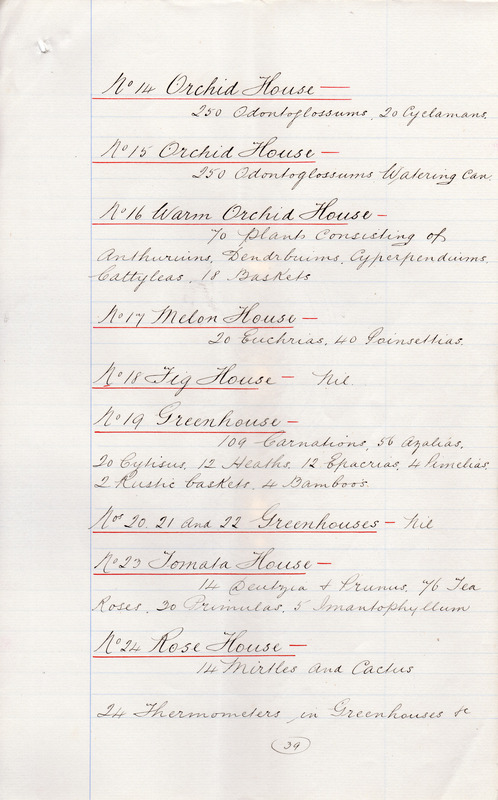 No 14 Orchid House —
250 Odontoglossums. 20 Cyclamans.
No 15 Orchid House —
250 Odontoglossums Watering Can.
No 16 Warm Orchid House —
70 Plants Consisting of
Anthuruins, Dendrbuims, Cyperpenduims,
Cattyleas. 18 Baskets
No 17 Melon House —
20 Euchrias. 40 Poinsettias.
No 18 Fig House — Nil.
No 19 Greenhouse —
109 Carnations, 56 Azalias,
20 Cytisus, 12 Heaths, 12 Epacrias, 4 Pimelias,
2 Rustic baskets, 4 Bamboos.
Nos 20. 21 and 22 Greenhouses — Nil
No 23 Tomata House —
14 Deutzia & Prunus, 76 Tea
Roses. 30 Primulas. 5 Imantophyllum
No 24 Rose House —
14 Mirtles and Cactus
24 Thermometers in Greenhouses &c
39